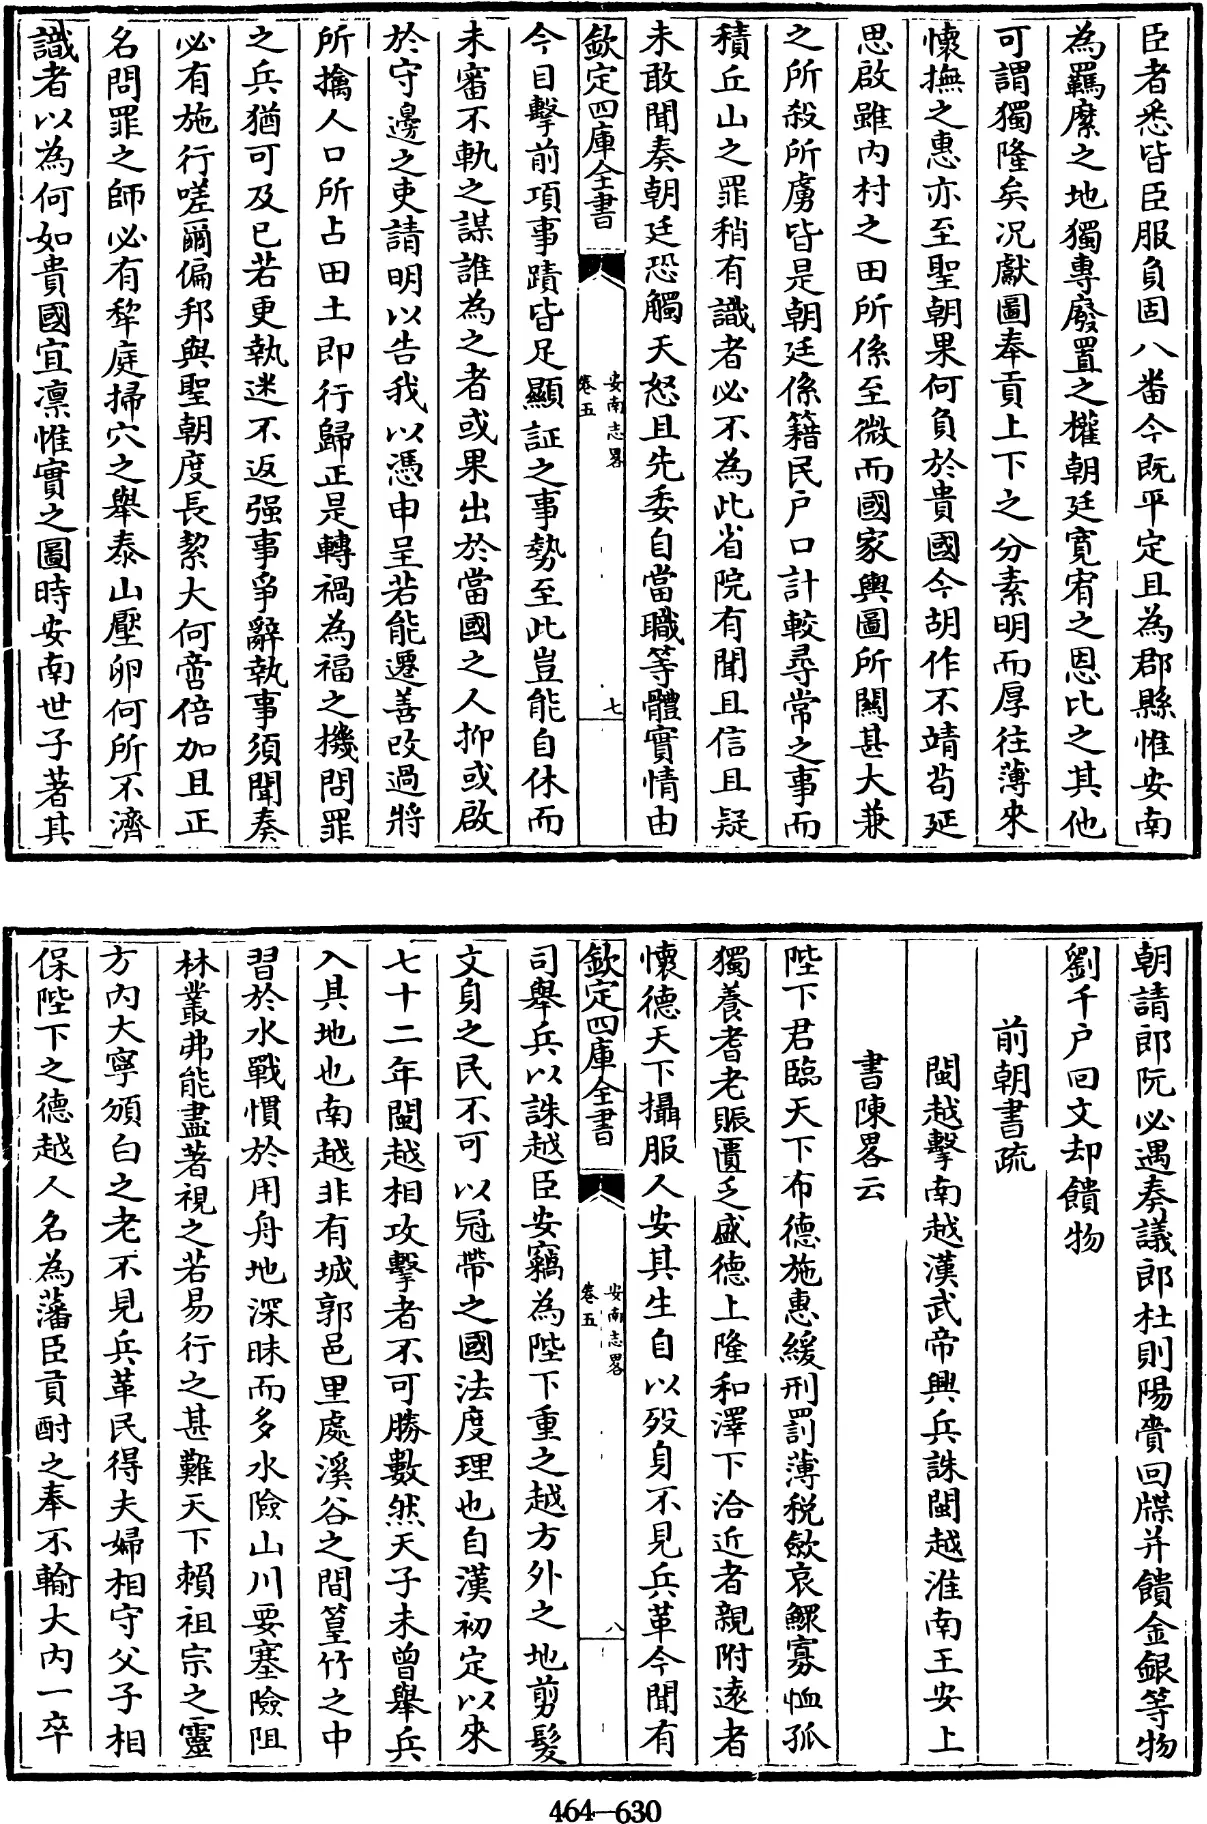 臣者悉皆臣服負固八番今既平定且為郡縣惟安南
為羈縻之地獨專廢置之權朝廷寛宥之恩比之其他
可謂獨隆矣况獻圖奉貢上下之分素明而厚往薄來
懷撫之惠亦至聖朝果何負於貴國今胡作不靖茍延
思啟雖內村之田所係至微而國家輿圖所關甚大兼
之所殺所虜皆是朝廷係籍民户口計較尋常之事而
積丘山之罪稍有識者必不為此省院有聞且信且疑
未敢聞奏朝廷恐觸天怒且先委自當職等體實情由
欽定四庫全書
安南志畧
卷五
七
今目擊前項事蹟皆足顯証之事勢至此豈能自休而
未審不軌之謀誰為之者或果出於當國之人抑或啟
於守邊之吏請明以告我以憑申呈若能遷善改過將
所擒人口所占田土即行歸正是轉禍為福之機問罪
之兵猶可及已若更執迷不返强事爭辭執事須聞奏
必有施行嗟爾偏邦與聖朝度長絜大何啻倍加且正
名問罪之師必有犂庭掃穴之舉泰山壓卵何所不濟
識者以為何如貴國宜凛惟實之圖時安南世子著其
朝請郎阮必遇奏議郎杜則陽賫回牒并饋金銀等物
劉千户回文却饋物
前朝書疏
閩越擊南越漢武帝興兵誅閩越淮南王安上
書陳畧云
陛下君臨天下布德施惠緩刑罰薄税斂哀鰥寡恤孤
獨養耆老賑匱乏盛德上隆和澤下洽近者親附逺者
懷德天下攝服人安其生自以殁身不見兵革今聞有
欽定四庫全書
安南志畧
卷五
八
司舉兵以誅越臣安竊為陛下重之越方外之地剪髮
文身之民不可以冠帶之國法度理也自漢初定以來
七十二年閩越相攻擊者不可勝數然天子未曾舉兵
入其地也南越非有城郭邑里處溪谷之間篁竹之中
習於水戰慣於用舟地深昧而多水險山川要塞險阻
林叢弗能盡著視之若易行之甚難天下賴祖宗之靈
方內大寧頒白之老不見兵革民得夫婦相守父子相
保陛下之德越人名為藩臣貢酎之奉不輸大內一卒
464—630